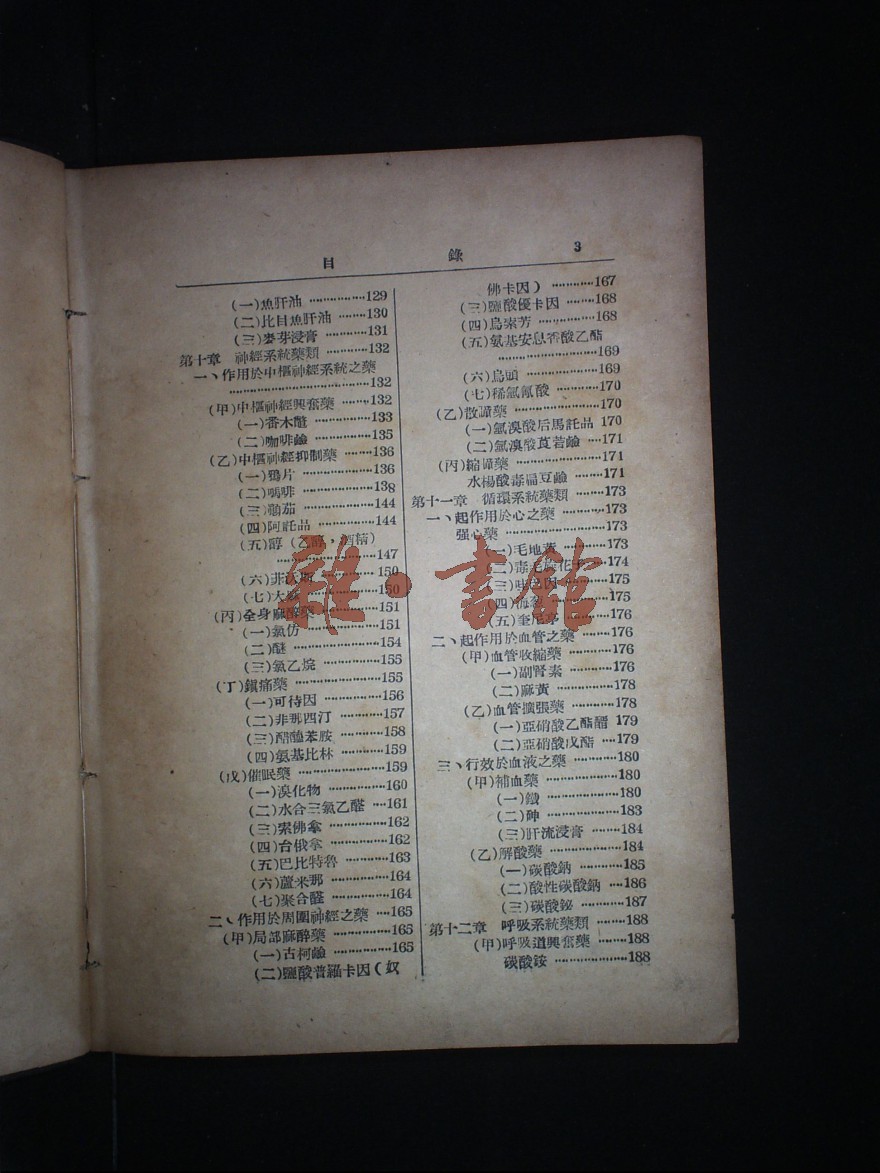 目 錄 3
(一)魚肝油 ……………129
(二)比目魚肝油 ………130
(三)麥芽浸膏 …………131
第十章 神經系統藥類 …………132
一、作用於中樞神經系統之藥
……………………………132
(甲)中樞神經興奮藥 ………132
(一)番木鼈 ……………133
(二)咖啡鹼 ……………135
(乙)中樞神經抑制藥 ………136
(一)鴉片 ………………136
(二)嗎啡 ………………138
(三)顛茄 ………………144
(四)阿託品 ……………144
(五)醇(乙醇,酒精)
……………………147
(六)非沃斯 ……………150
(七)大麻 ………………150
(丙)全身麻醉藥 ……………151
(一)氯仿 ………………151
(二)醚 …………………154
(三)氯乙烷 ……………155
(丁)鎮痛藥 …………………155
(一)可待因 ……………156
(二)非那西汀 …………157
(三)醋醯苯胺 …………158
(四)氨基比林 …………159
(戊)催眠藥 …………………159
(一)溴化物 ……………160
(二)水合三氯乙醛 ……161
(三)索佛拿 ……………162
(四)台俄拿 ……………162
(五)巴比特魯 …………163
(六)蘆米那 ……………164
(七)聚合醛 ……………164
二、作用於周圍神經之藥 ……165
(甲)局部麻醉藥 ……………165
(一)古柯鹼 ……………165
(二)鹽酸普羅卡因(奴
佛卡因) …………167
(三)鹽酸優卡因 ………168
(四)烏索芳 ……………168
(五)氨基安息香酸乙酯
……………………169
(六)烏頭 ………………169
(七)稀氫氰酸 …………170
(乙)散瞳藥 …………………170
(一)氫溴酸后馬託品 170
(二)氫溴酸莨菪鹼 ……171
(丙)縮瞳藥 …………………171
水楊酸毒扁豆鹼 ………171
第十一章 循環系統藥類 ………173
一、起作用於心之藥 …………173
强心藥 ……………………173
(一)毛地黃 ……………173
(二)毒毛 ………………174
(三) ……………………175
(四)海葱 ………………175
(五)奎尼丁 ……………176
二、起作用於血管之藥 ………176
(甲)血管收縮藥 ……………176
(一)副腎素 ……………176
(二)麻黃 ………………178
(乙)血管擴張藥 ……………178
(一)亞硝酸乙酯醑 179
(二)亞硝酸戊酯 ………179
三、行效於血液之藥 …………180
(甲)補血藥 …………………180
(一)鐵 …………………180
(二)砷 …………………183
(三)肝流浸膏 …………184
(乙)解酸藥 …………………184
(一)碳酸鈉 ……………185
(二)酸性碳酸鈉 ………186
(三)碳酸鉍 ……………187
第十二章 呼吸系統藥類 ………188
(甲)呼吸道興奮藥 …………188
碳酸銨 …………………188
雜·書館